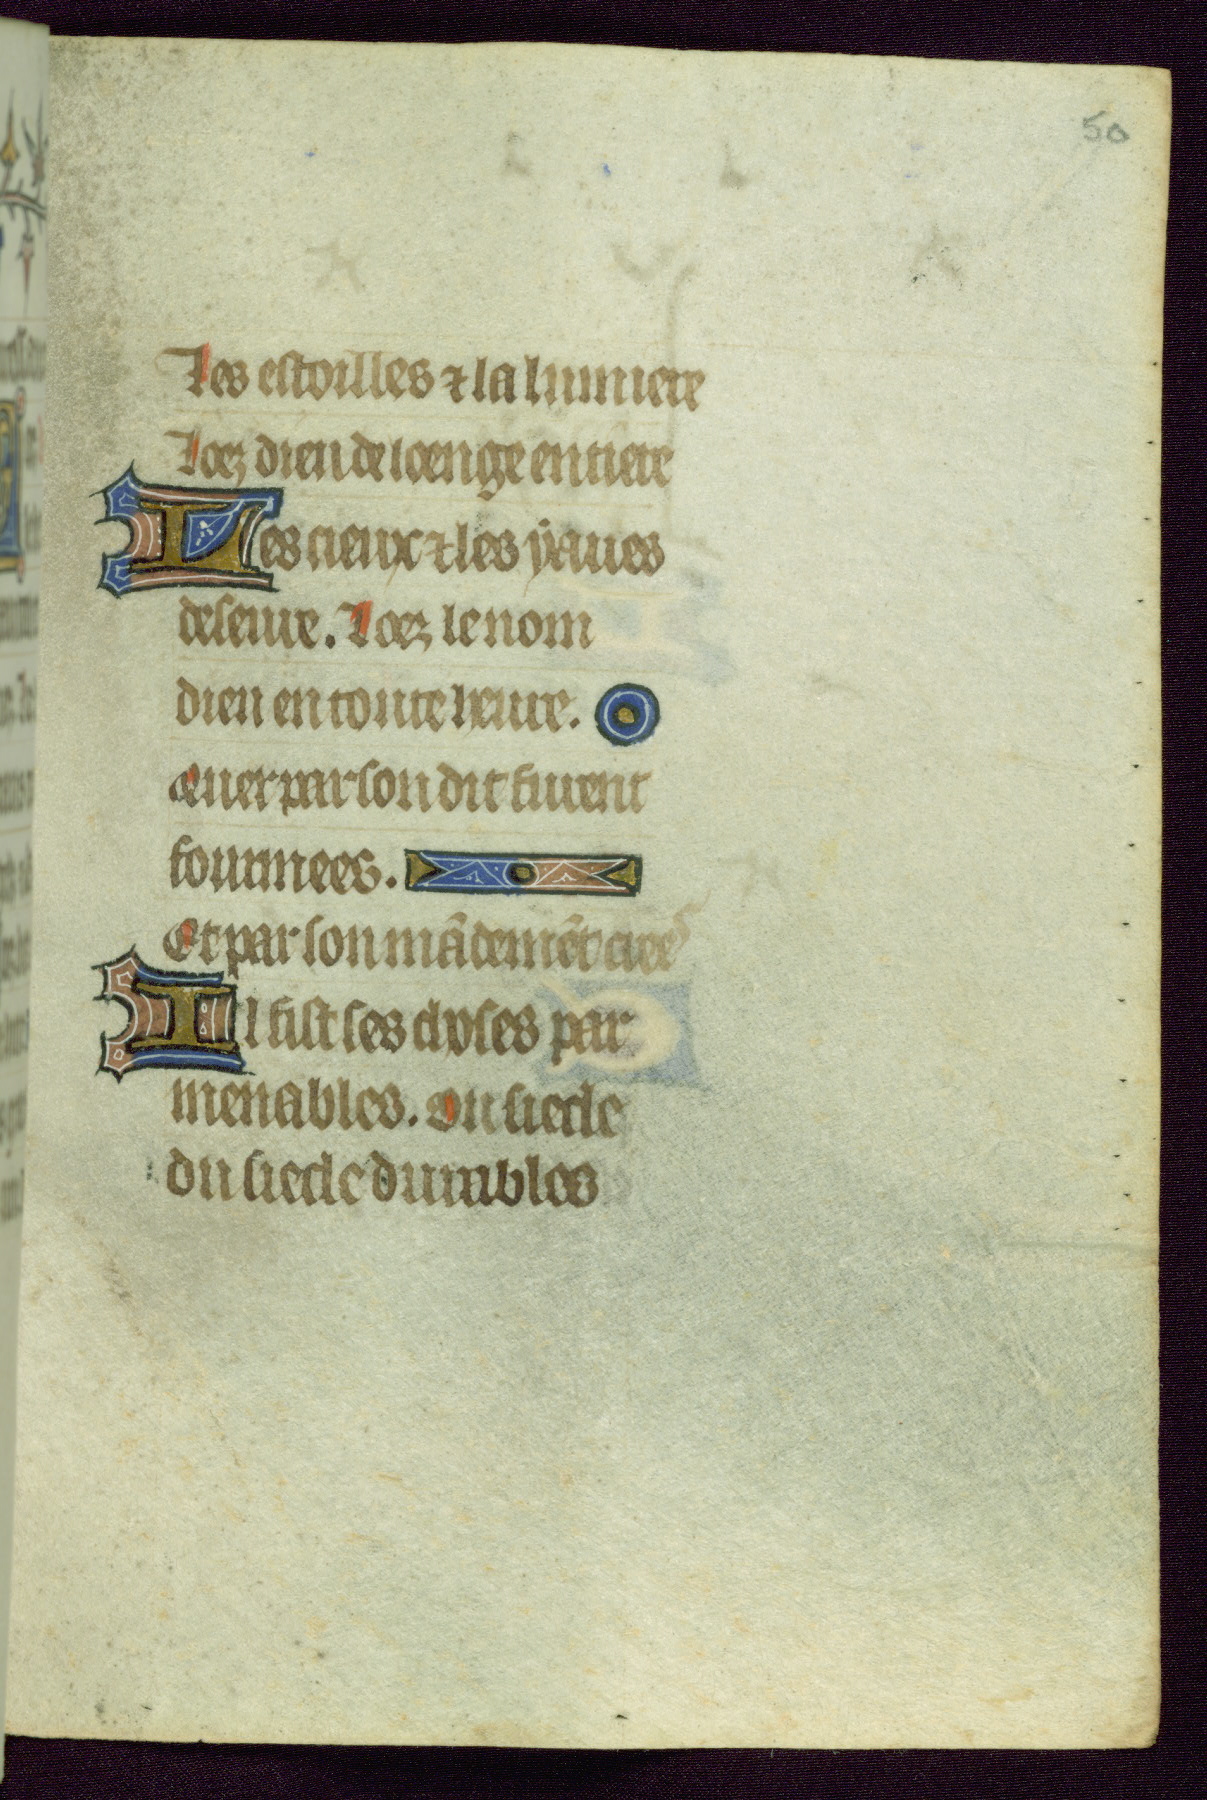 50
Les estoilles ⁊ la lumiere
Loez dieu de loenge entiere
Les cieux ⁊ les yaues
deseure. Loez le nom
dieu en toute heure.
Quer par son dit furent
fourmees.
Et par son mādemēt creeˢ
Il fist ses choses par
menables. Ou siecle
du siecle durables